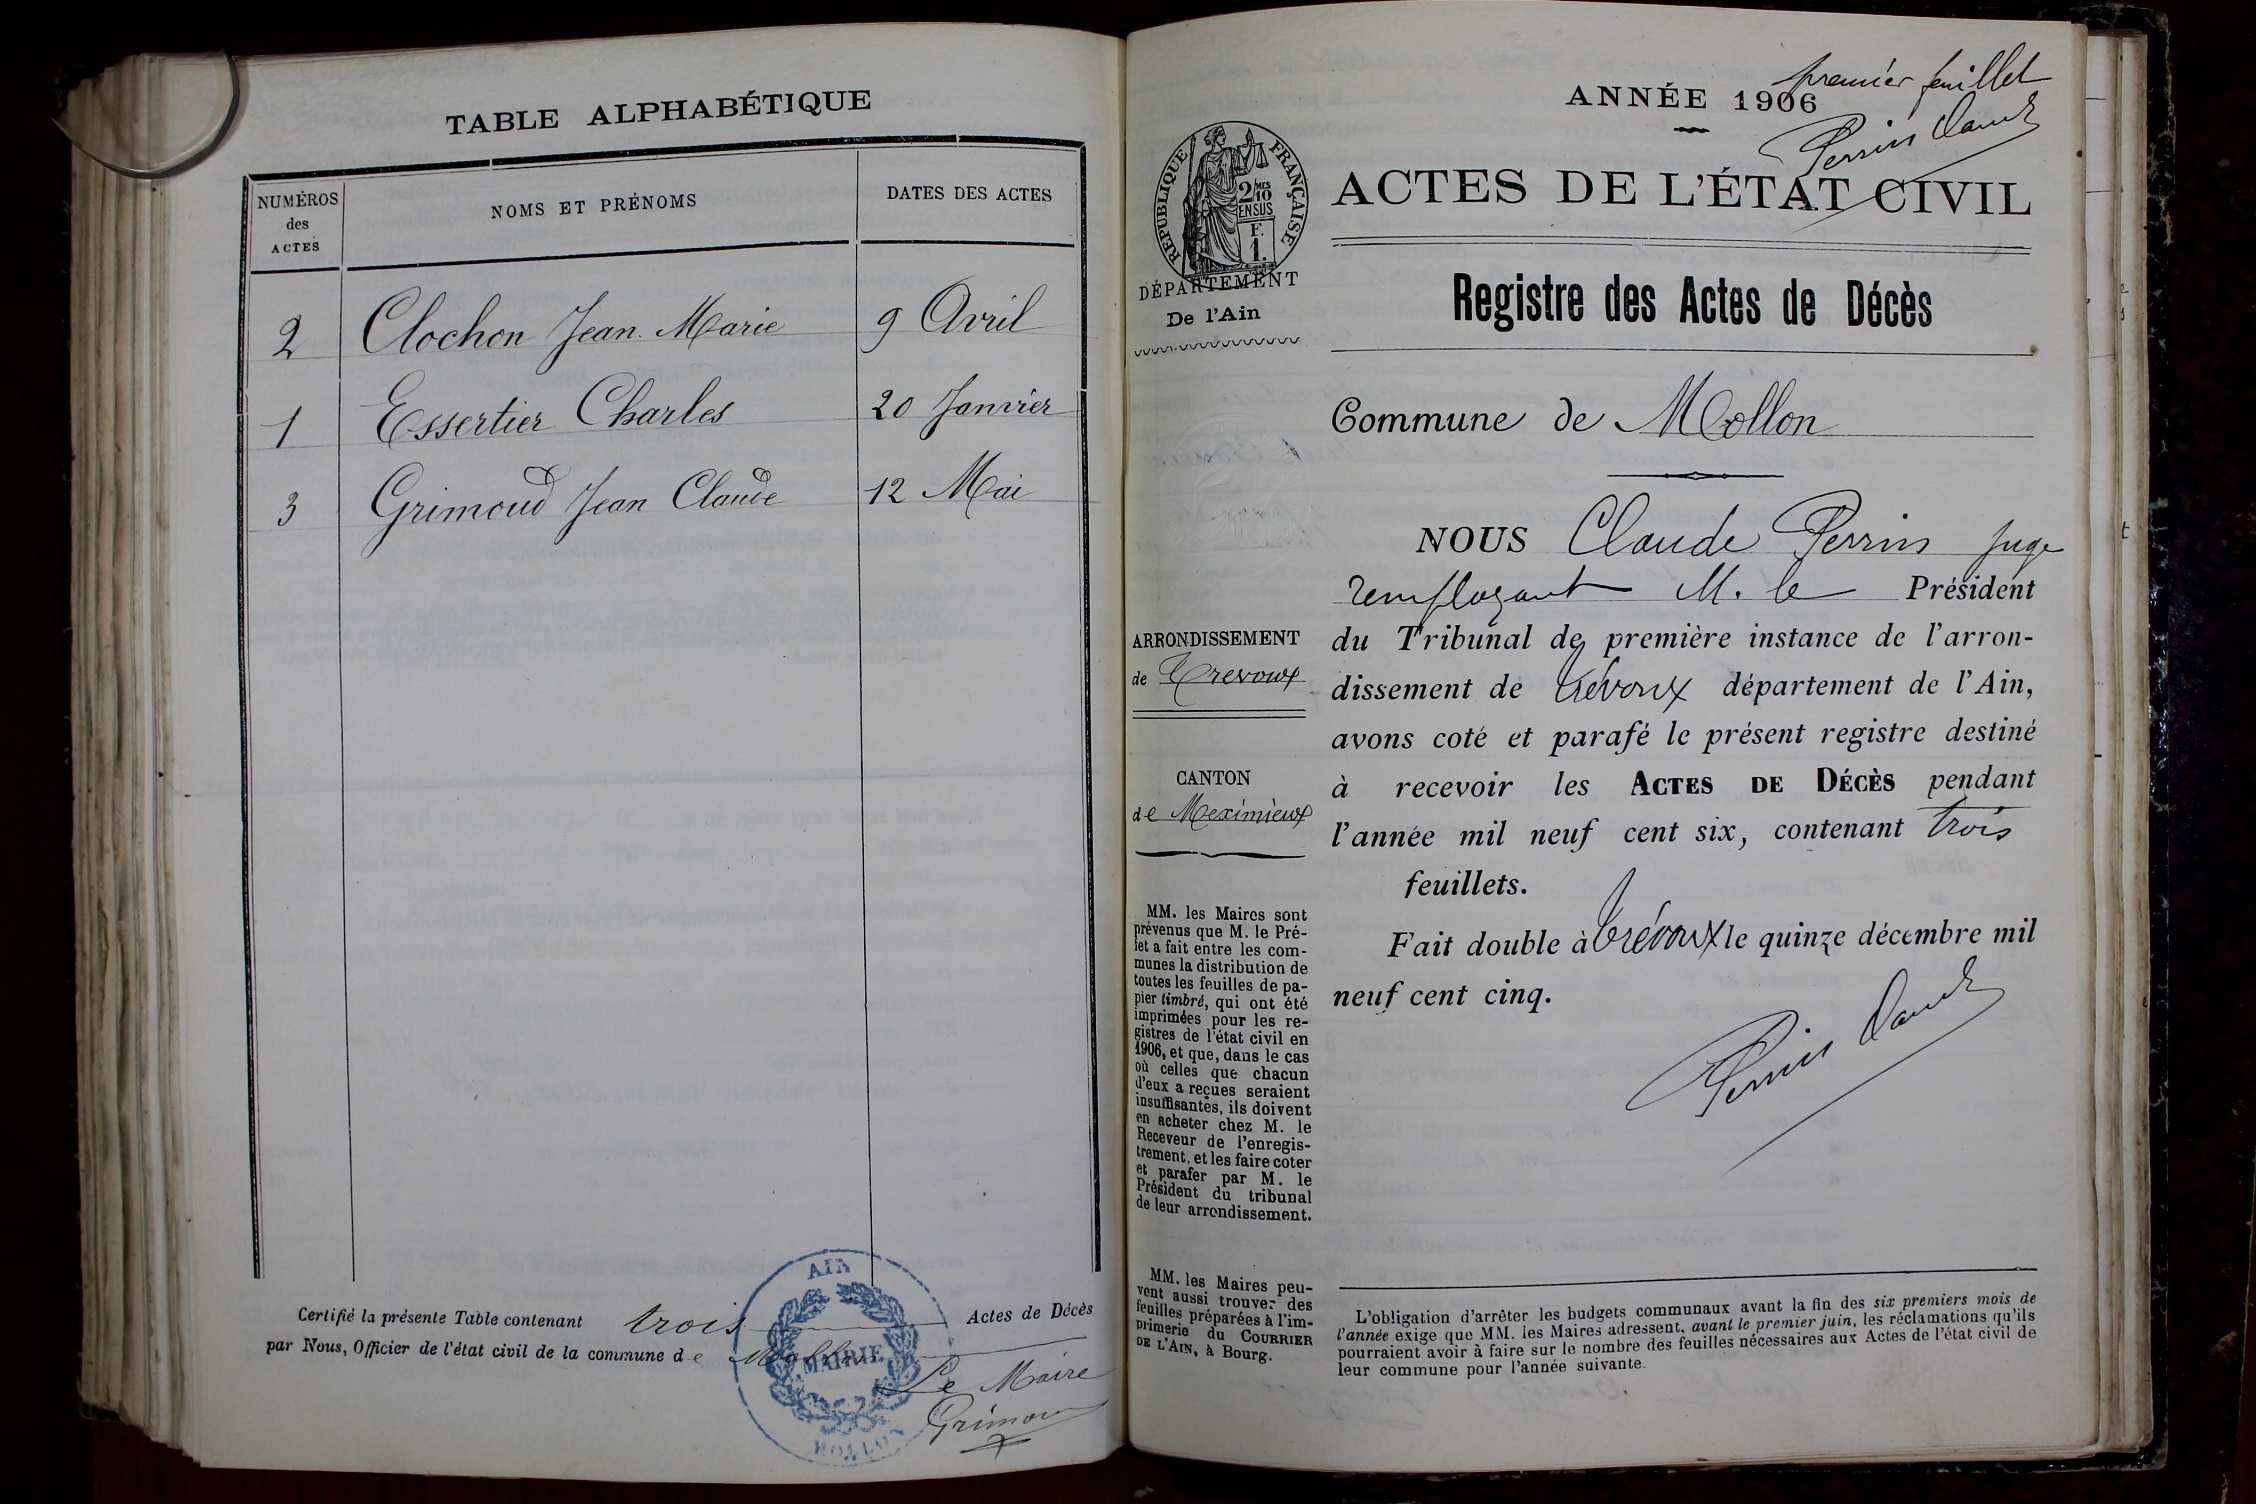 TABLE ALPHABÉTIQUE
NUMÉROS
des
ACTES
NOMS ET PRÉNOMS
DATES DES ACTES
2 Clochon Jean Marie 9 Avril
1 Essertier Charles 20 Janvier
3 Grimoud Jean Claude 12 Mai
Certifié la présente Table contenant trois Actes de Décès
par Nous, Officier de l'état civil de la commune de Mollon
Le Maire
Grimoud
AIN
MAIRIE
MOLLON
premier feuillet
ANNÉE 1906
Perrin Claude
RÉPUBLIQUE FRANÇAISE
2/10
MES
EN SUS
F.
1.
DÉPARTEMENT
De l'Ain
ACTES DE L'ÉTAT CIVIL
Registre des Actes de Décès
Commune de Mollon
NOUS Claude Perrin juge
remplaçant M. le Président
du Tribunal de première instance de l'arron-
dissement de Trévoux département de l'Ain,
avons coté et parafé le présent registre destiné
à recevoir les ACTES DE DÉCÈS pendant
l'année mil neuf cent six, contenant trois
feuillets.
Fait double à Trévoux le quinze décembre mil
neuf cent cinq.
Perrin Claude
ARRONDISSEMENT
de Trevoux
CANTON
de Meximieux
MM. les Maires sont
prévenus que M. le Pré-
fet a fait entre les com-
munes la distribution de
toutes les feuilles de pa-
pier timbré, qui ont été
imprimées pour les re-
gistres de l'état civil en
1906, et que, dans le cas
où celles que chacun
d'eux a reçues seraient
insuffisantes, ils doivent
en acheter chez M. le
Receveur de l'enregis-
trement, et les faire coter
et parafer par M. le
Président du tribunal
de leur arrondissement.
MM. les Maires peu-
vent aussi trouver des
feuilles préparées à l'im-
primerie du COURRIER
DE L'AIN, à Bourg.
L'obligation d'arrêter les budgets communaux avant la fin des six premiers mois de
l'année exige que MM. les Maires adressent, avant le premier juin, les réclamations qu'ils
pourraient avoir à faire sur le nombre des feuilles nécessaires aux Actes de l'état civil de
leur commune pour l'année suivante.